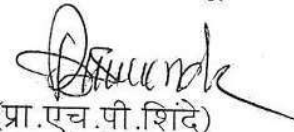 (प्रा.एच.पी.शिंदे)